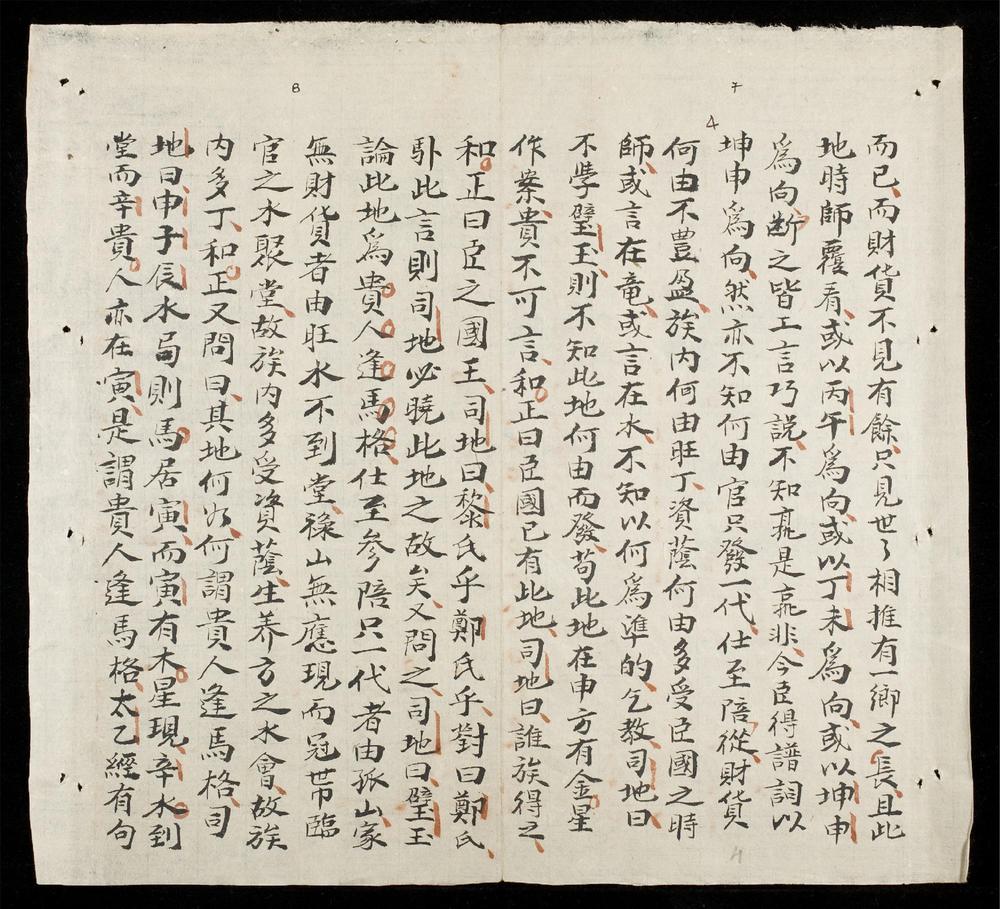 8
7
4
而已而財貨不見有餘只見世〻相推有一鄉之長且此
地時師覆看或以丙午爲向或以丁未爲向或以坤申
爲向断之皆工言巧說不知孰是孰非今臣得譜詞以
坤申爲向然亦不知何由官只發一代仕至陪從財貨
何由不豊盈族内何由旺丁資蔭何由多受臣國之時
師或言在竜或言在水不知以何爲準的乞教司地曰
不學璧玉則不知此地何由而發苟此地在申方有金星
作案貴不可言和正曰臣國已有此地司地曰誰族得之
和正曰臣之國王司地曰黎氏乎鄭氏乎對曰鄭氏
卧此言則司地必曉此地之故矣又問之司地曰璧玉
論此地爲貴人逢馬格仕至参陪只一代者由孤山家
無財貨者由旺水不到堂祿山無應現而冠带臨
官之水聚堂故族内多受資蔭生养方之水會故族
内多丁和正又問曰其地何如何謂貴人逢馬格司
地曰申子辰水局則馬居寅而寅有木星現辛水到
堂而辛貴人亦在寅是謂貴人逢馬格太乙經有句
4